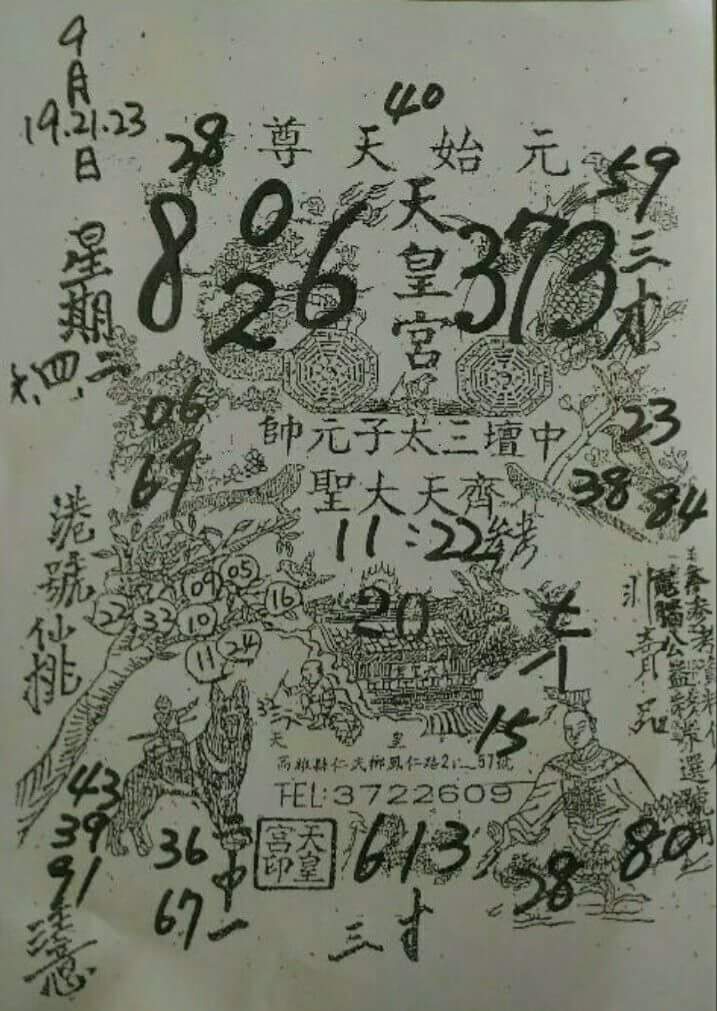 9
月
19.21.23
日
星期
六、四、二
港號仙桃
40
元始天尊
28
59
天皇宮
8 0 2 6
373
三才
06
69
中壇三太子元帥
23
38 84
齊天大聖
11:22參考
09 05
22 32 10 16
11 24
20
七
15
32
天 皇
高雄縣仁武鄉鳳仁路
TEL:3722609
天皇宮印
43
39
91
注意
36
67
二中一
613
三才
28
80
非賣品
參考資料
電腦公益彩券選號用